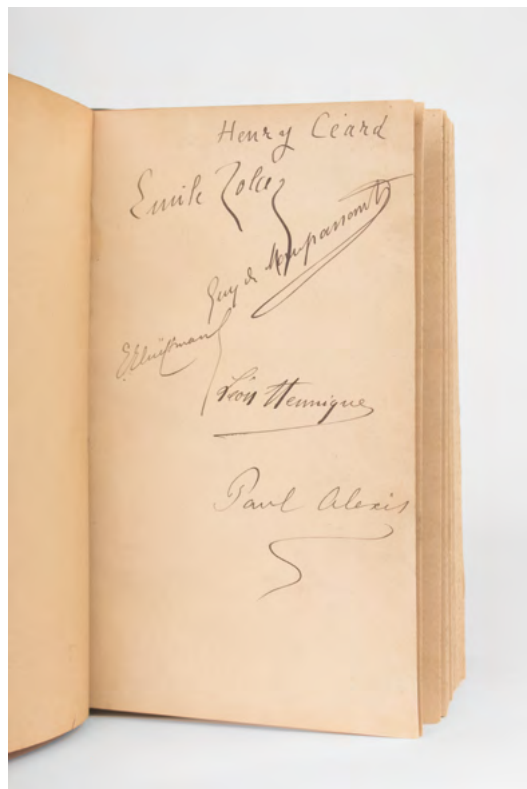 Henry Céard
Emile Zola
Guy de Maupassant
Léon Hennique
Paul Alexis